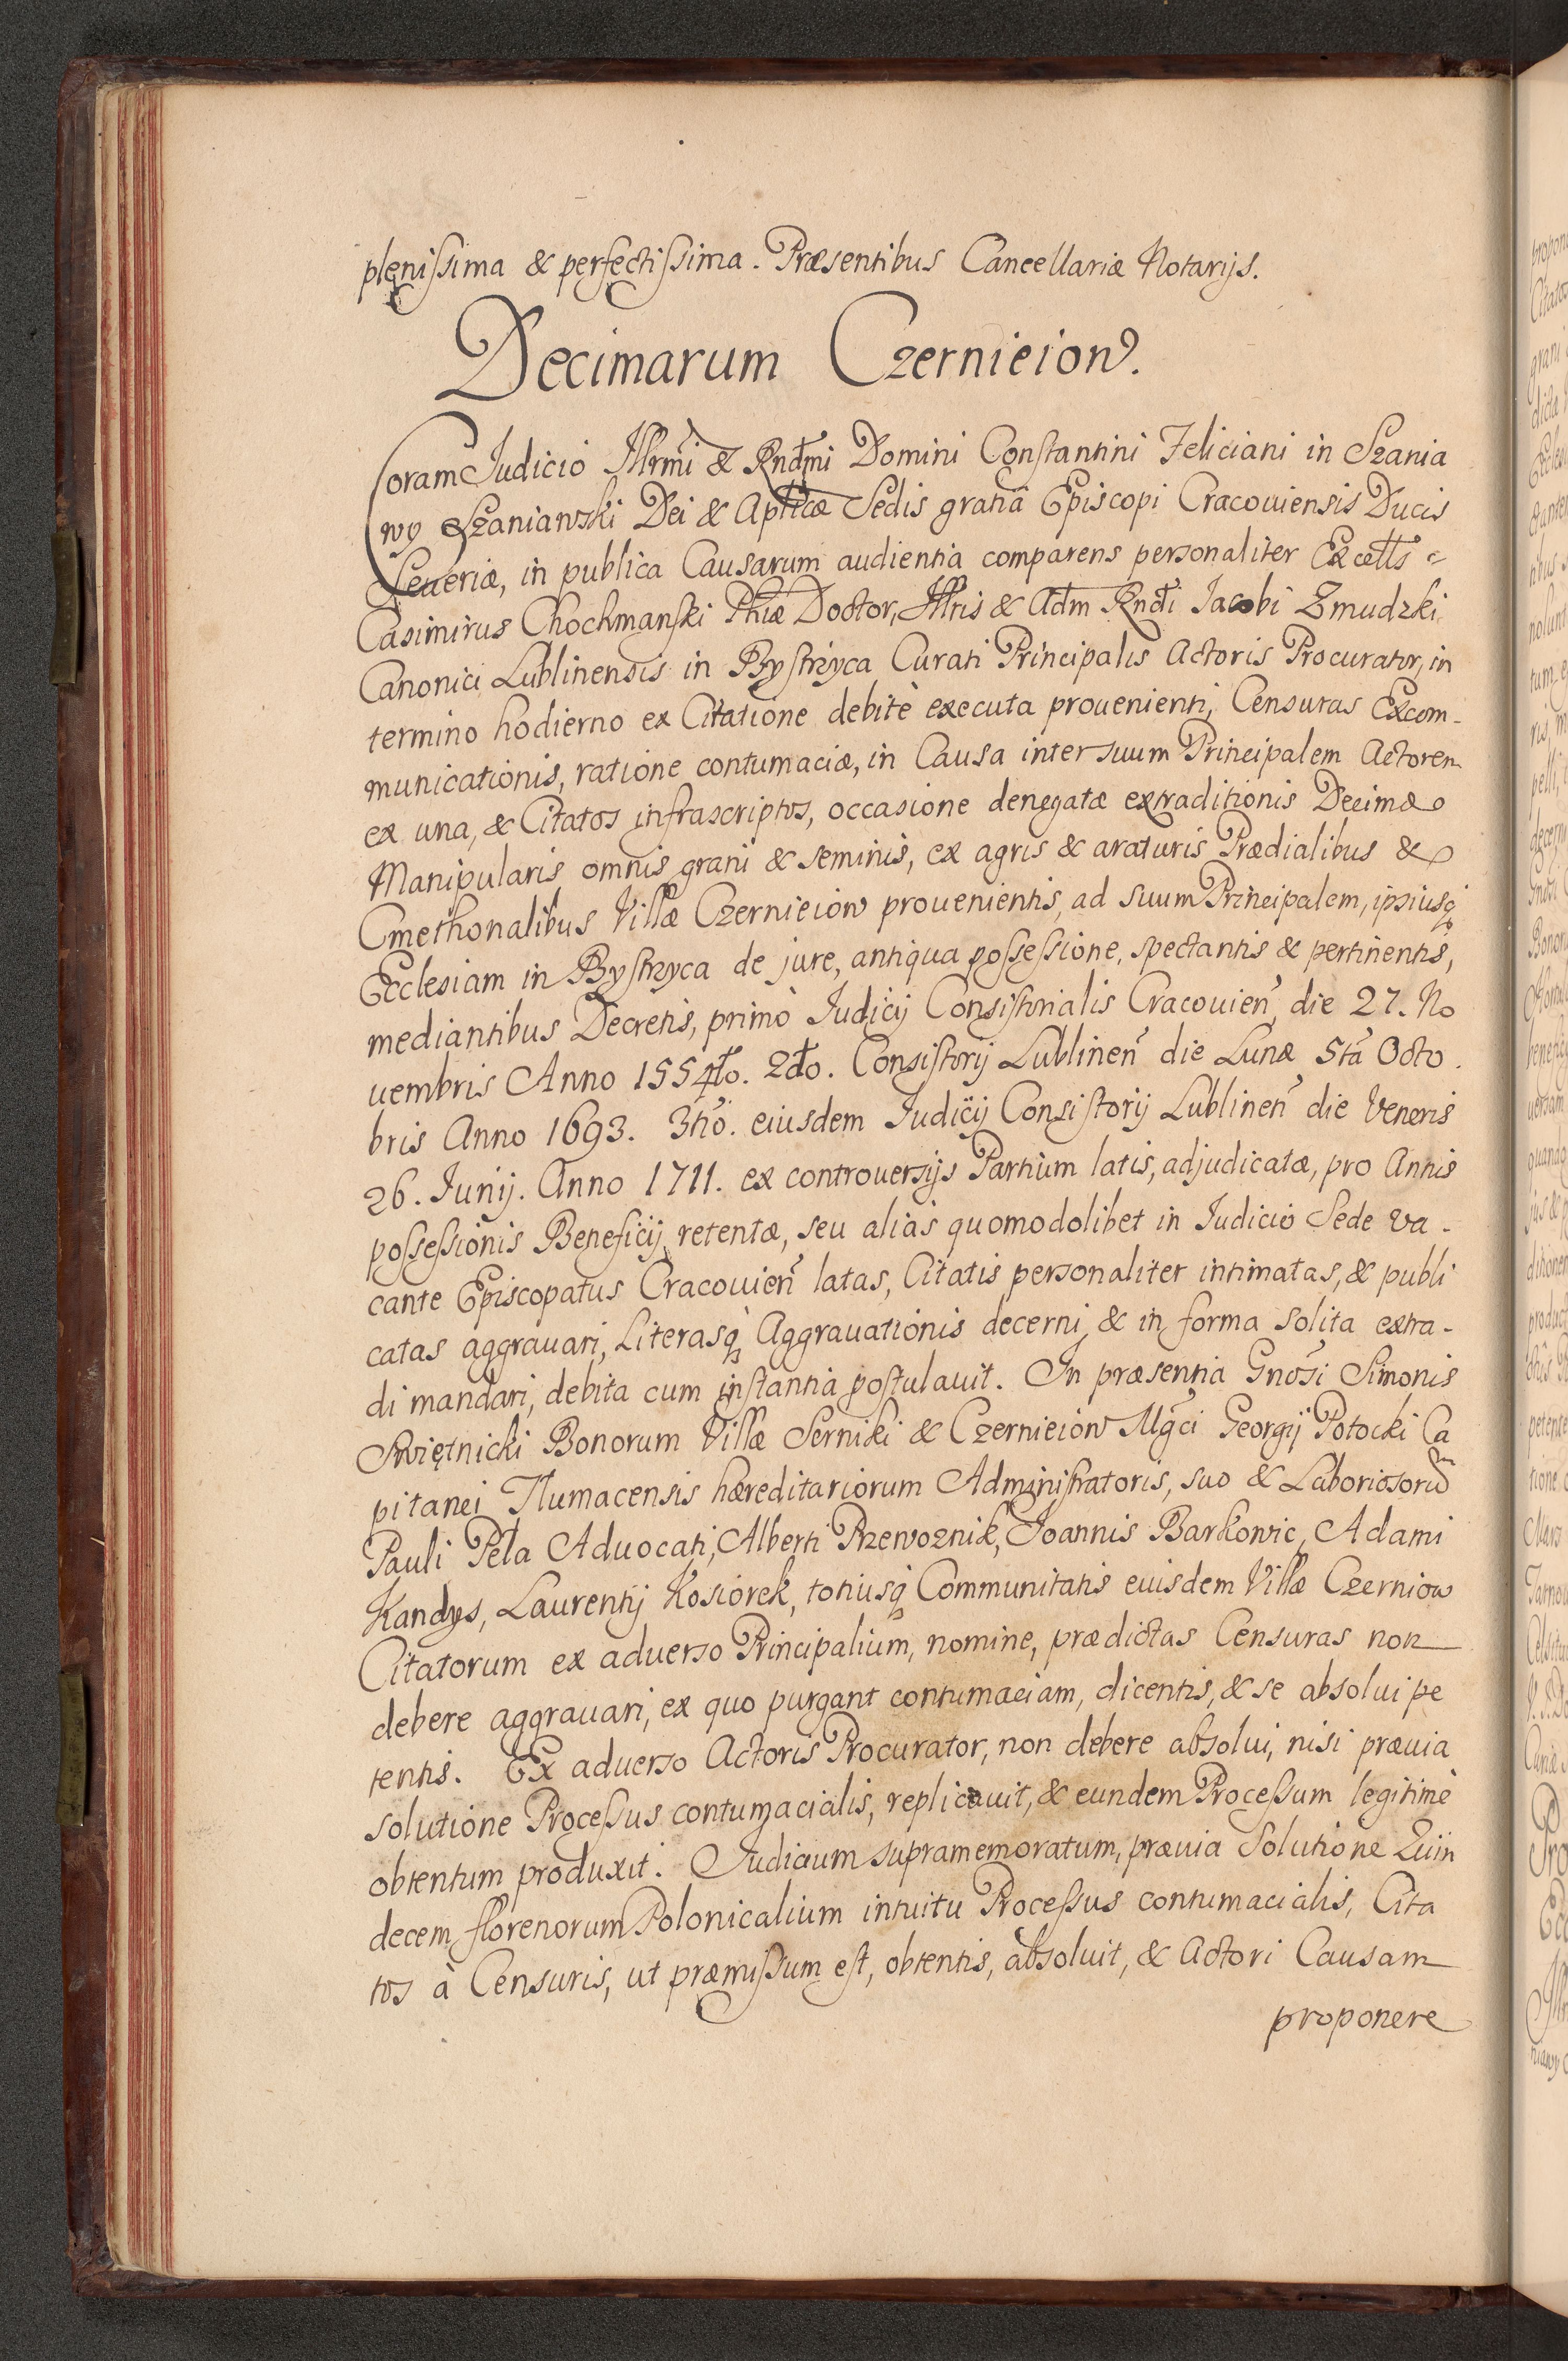 plenissima & perfectissima. Præsentibus Cancellariæ Notarijs.
Decimarum Czernieiow.
Coram Judicio Illrm̃i & Rndm̃i Domini Constantini Feliciani in Szania
wy Szaniawski Dei & Aplicæ Sedis gratiâ Episcopi Cracouiensis Ducis
Seueriæ, in publica Causarum audientia comparens personaliter Excells =
Casimirus Chockmanski Phiæ Doctor, Illris & Adm Rndi Jacobi Zmudzki
Canonici Lublinensis in Bystrzyca Curati Principalis Actoris Procurator, in
termino hodierno ex Citatione debitè executa prouenienti, Censuras Excom-
municationis, ratione contumaciæ, in Causa inter suum Principalem Actorem
ex una, & Citatos infrascriptos, occasione denegatæ extraditionis Decimæ
Manipularis omnis grani & seminis, ex agris & araturis Prædialibus &
Cmethonalibus Villæ Czernieiow prouenientis, ad suum Principalem, ipsiusq̀
Ecclesiam in Bystrzyca de jure, antiqua possessione, spectantis & pertinentis,
mediantibus Decretis, primò Judicij Consistorialis Cracouieñ die 27. No
uembris Anno 1554to. 2do. Consistorij Lublineñ die Lunæ 5tã Octo.
bris Anno 1693. 3tiõ. eiusdem Judicij Consistorij Lublineñ die Veneris
26. Junij. Anno 1711. ex controuersijs Partium latis, adjudicatæ, pro Annis
possessionis Beneficij retentæ, seu aliàs quomodolibet in Judicio Sede va-
cante Episcopatus Cracouieñ latas, Citatis personaliter intimatas, & publi
catas aggrauari, Literasq̀ Aggrauationis decerni & in forma solita extra-
di mandari, debita cum instantia postulauit. In præsentia Gnosi Simonis
Swiętnicki Bonorum Villæ Serniki & Czernieiow Mgci Georgij Potocki Ca
pitanei Tlumacensis hæreditariorum Administratoris, suo & Laboriosorũ
Pauli Pela Aduocati, Alberti Przewoznik, Joannis Barkowic, Adami
Kandys, Laurentij Kosiorek, totiusq̀ Communitatis euisdem Villæ Czerniow
Citatorum ex aduerso Principalium, nomine, prædictas Censuras non
debere aggrauari, ex quo purgant contumaciam, dicentis, & se absolui pe
tentis. Ex aduerso Actoris Procurator, non debere absolui, nisi præuia
solutione Processus contumacialis, replicauit, & eundem Processum legitimè
obtentum produxit. Judicium supramemoratum, præuia Solutione Quin
decem florenorum Polonicalium intuitu Processus contumacialis, Cita
tos à Censuris, ut præmissum est, obtentis, absoluit, & Actori Causam
proponere